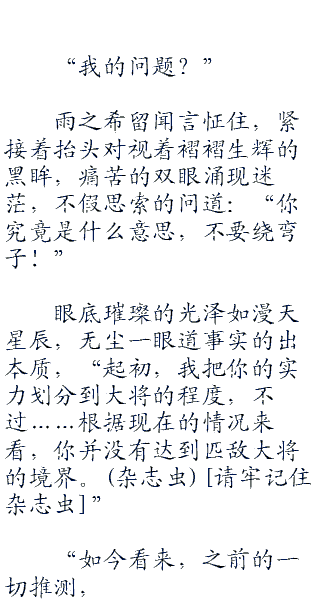 “我的问题？”
雨之希留闻言怔住，紧
接着抬头对视着褶褶生辉的
黑眸，痛苦的双眼涌现迷
茫，不假思索的问道：“你
究竟是什么意思，不要绕弯
子！”
眼底璀璨的光泽如漫天
星辰，无尘一眼道事实的出
本质，“起初，我把你的实
力划分到大将的程度，不
过……根据现在的情况来
看，你并没有达到匹敌大将
的境界。(杂志虫)[请牢记住
杂志虫]”
“如今看来，之前的一
切推测，